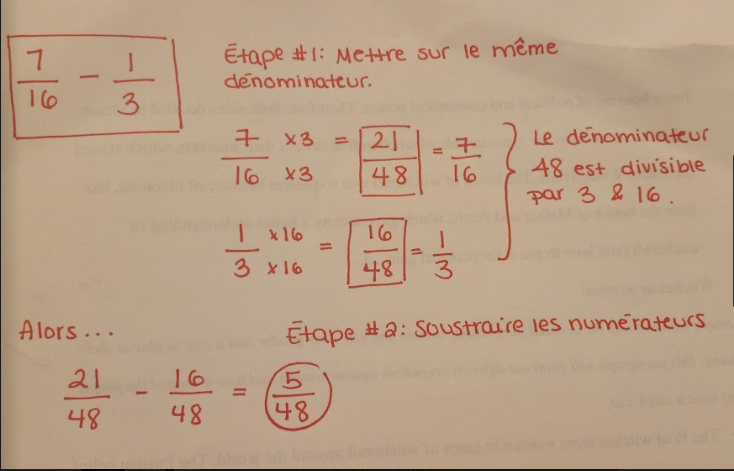 7/16 - 1/3
Étape #1: Mettre sur le même
dénominateur.
7/16 x3/x3 = 21/48 = 7/16
1/3 x16/x16 = 16/48 = 1/3
Le dénominateur
48 est divisible
par 3 & 16.
Alors...
Étape #2: Soustraire les numérateurs
21/48 - 16/48 = 5/48